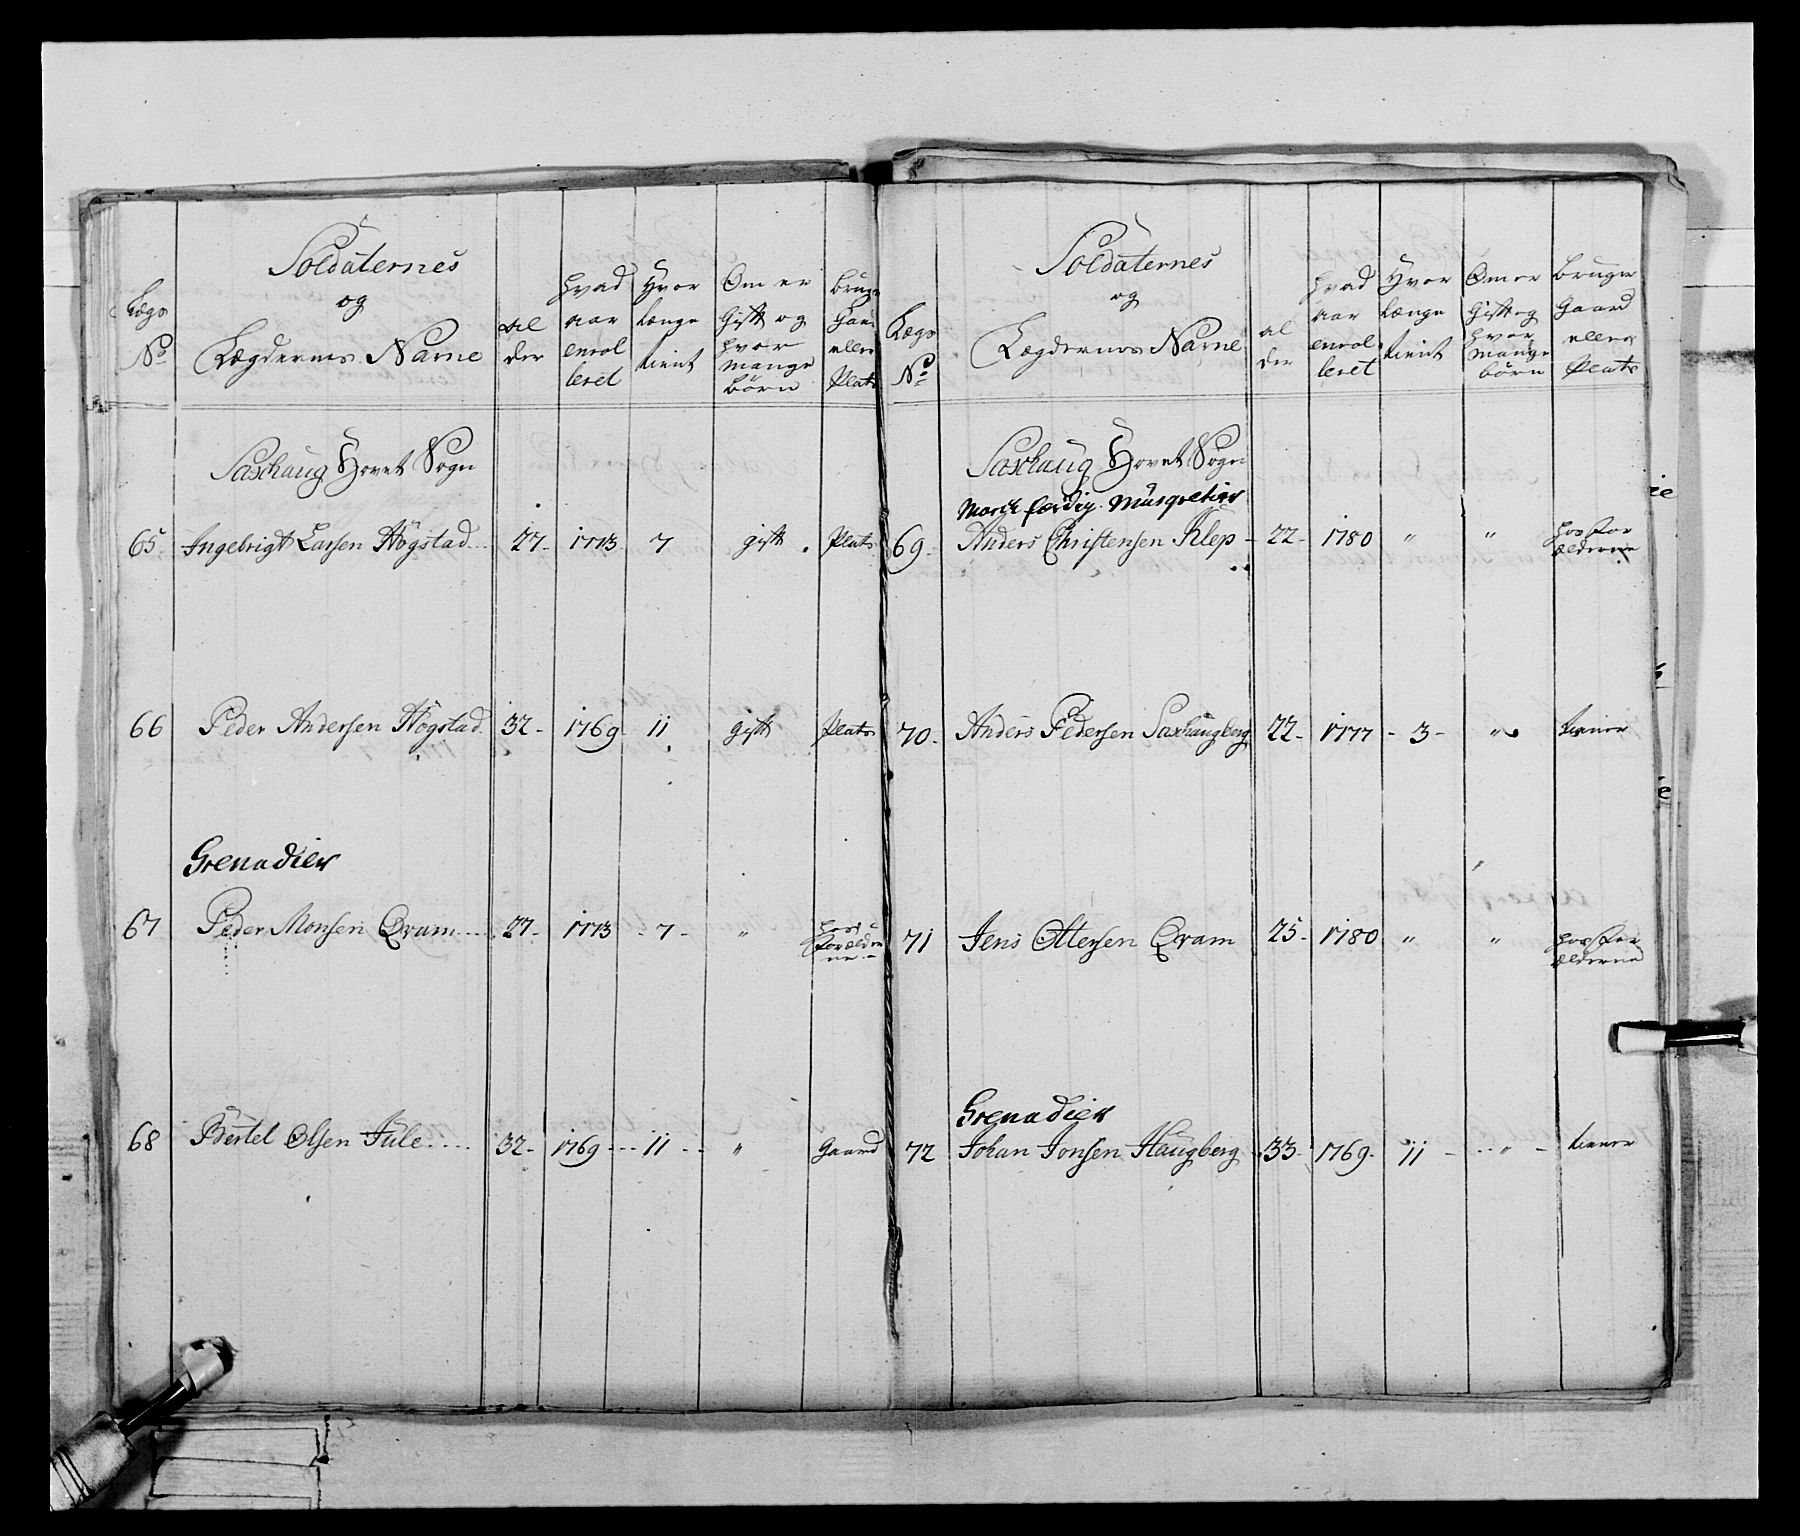 Lægs
No
Soldaternes
og
Lægdernes Navne
al
der
hvad
aar
enrol
leret
Hvor
længe
tient
Om er
Gift og
hvor
mange
börn
Bruger
Gaard
eller
Plats
Saxhaug Hovet Sogn
65 Ingebrigt Larsen Högstad 27 1773 7 gift Plats
66 Peder Andersen Högstad 32 1769 11 gift Plats
Grenadier
67 Peder Monsen Qvam 27 1773 7 " hos
Forældre
ne
68 Bertel Olsen Jule 32 1769 11 " Gaard
Lægs
No
Soldaternes
og
Lægdernes Navne
al
der
hvad
aar
enrol
leret
Hvor
længe
tient
Om er
Gift og
hvor
mange
börn
Bruger
Gaard
eller
Plats
Saxhaug Hovet Sogn
March færdig Musqvetier
69 Anders Christensen Klep 22 1780 " " hos For
ælderne
70 Anders Pedersen Saxhaugberg 22 1777 3 " tiener
71 Jens Ottersen Qvam 25 1780 " " hos For
ælderne
Grenadier
72 Johan Jonsen Haugberg 33 1769 11 " tiener